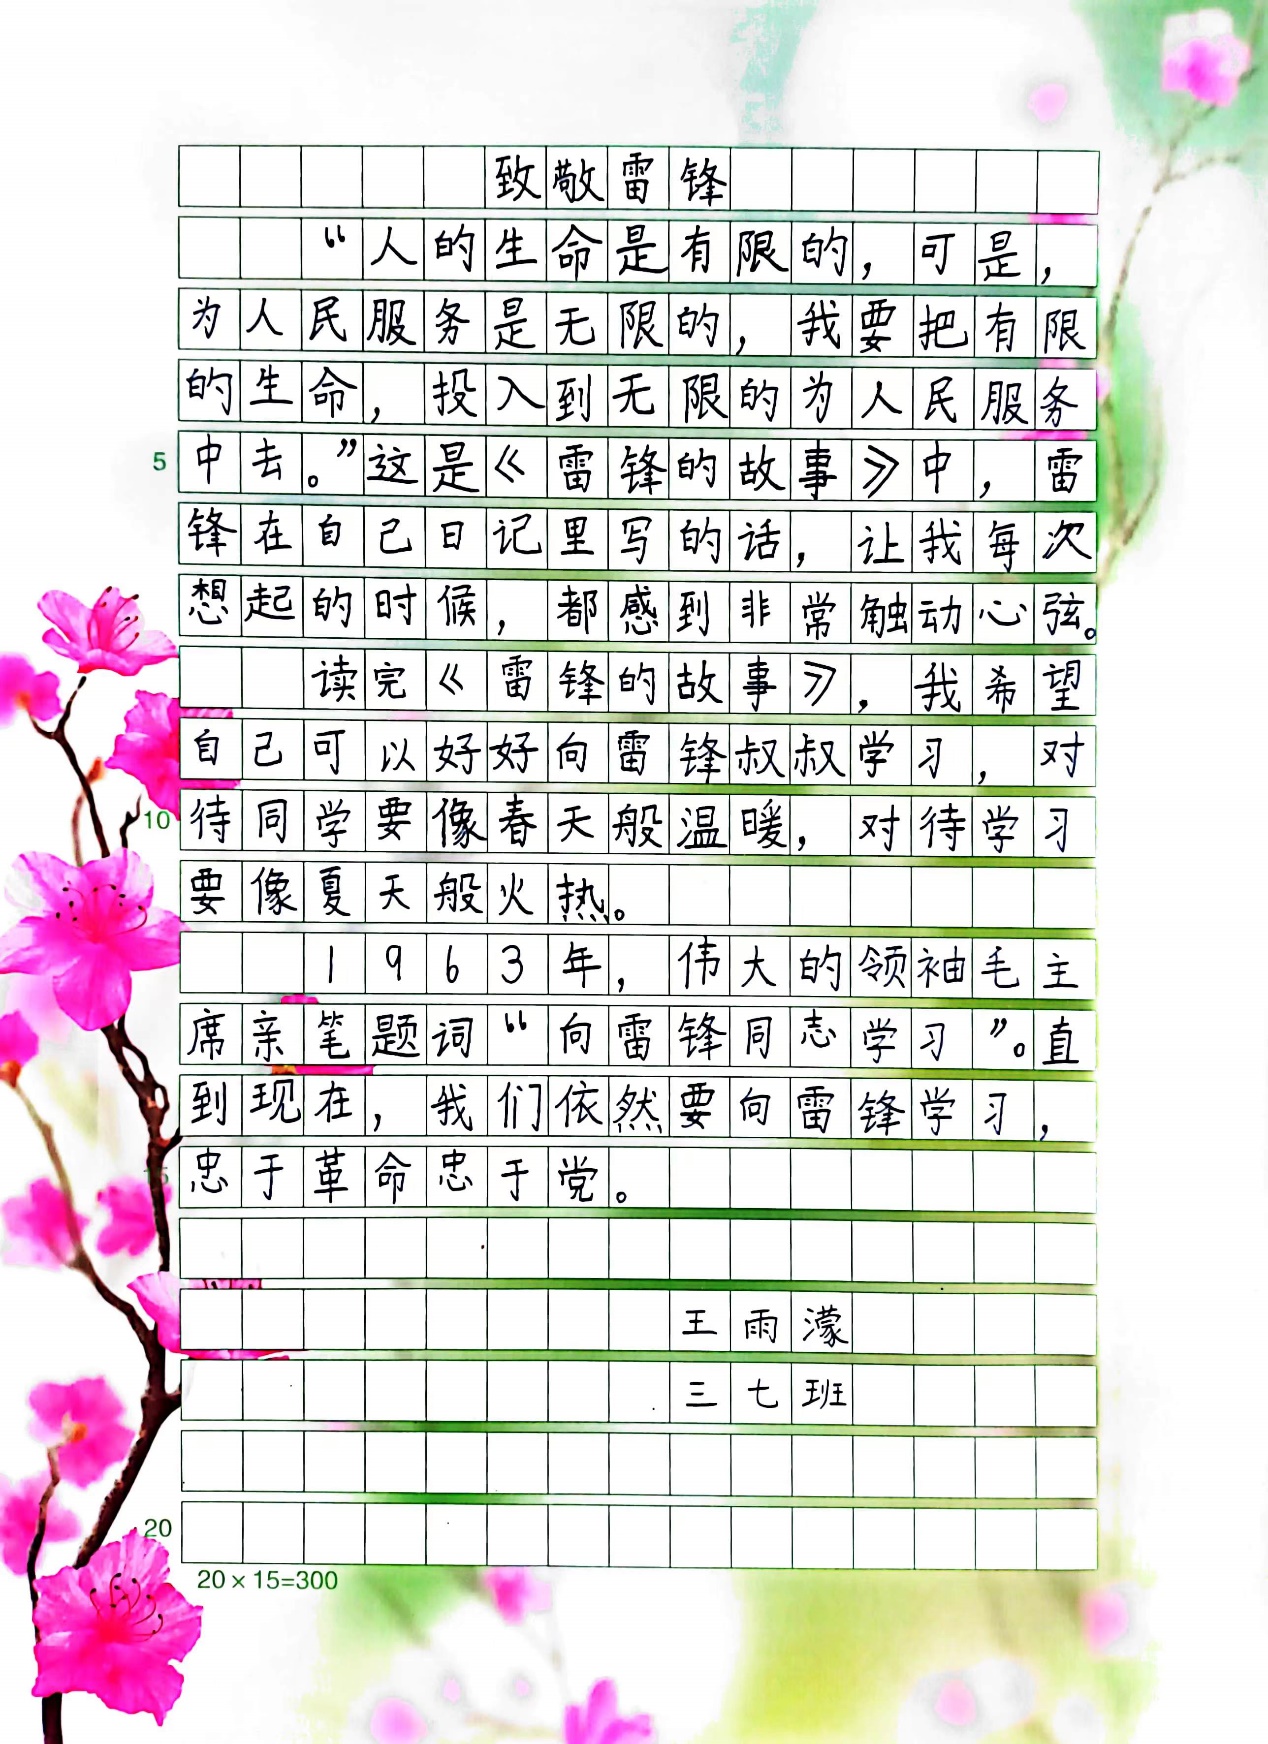 致敬雷锋
“人的生命是有限的，可是，
为人民服务是无限的，我要把有限
的生命，投入到无限的为人民服务
5 中去。”这是《雷锋的故事》中，雷
锋在自己日记里写的话，让我每次
想起的时候，都感到非常触动心弦。
读完《雷锋的故事》，我希望
自己可以好好向雷锋叔叔学习，对
10 待同学要像春天般温暖，对待学习
要像夏天般火热。
1963年，伟大的领袖毛主
席亲笔题词“向雷锋同志学习”。直
到现在，我们依然要向雷锋学习，
15 忠于革命忠于党。
王雨濛
三七班
20
20×15=300